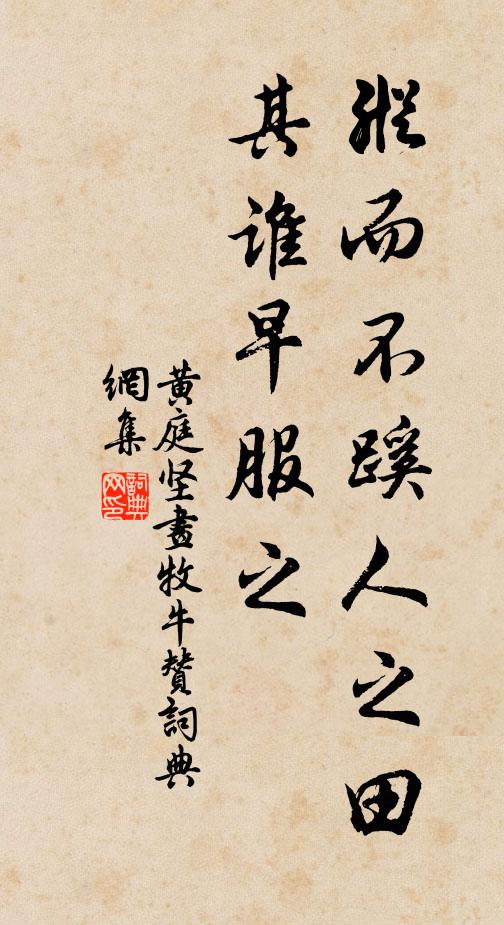 縱而不蹊人之田
其誰早服之
黄庭坚畫牧牛賛詞典
網集
詞典
网印